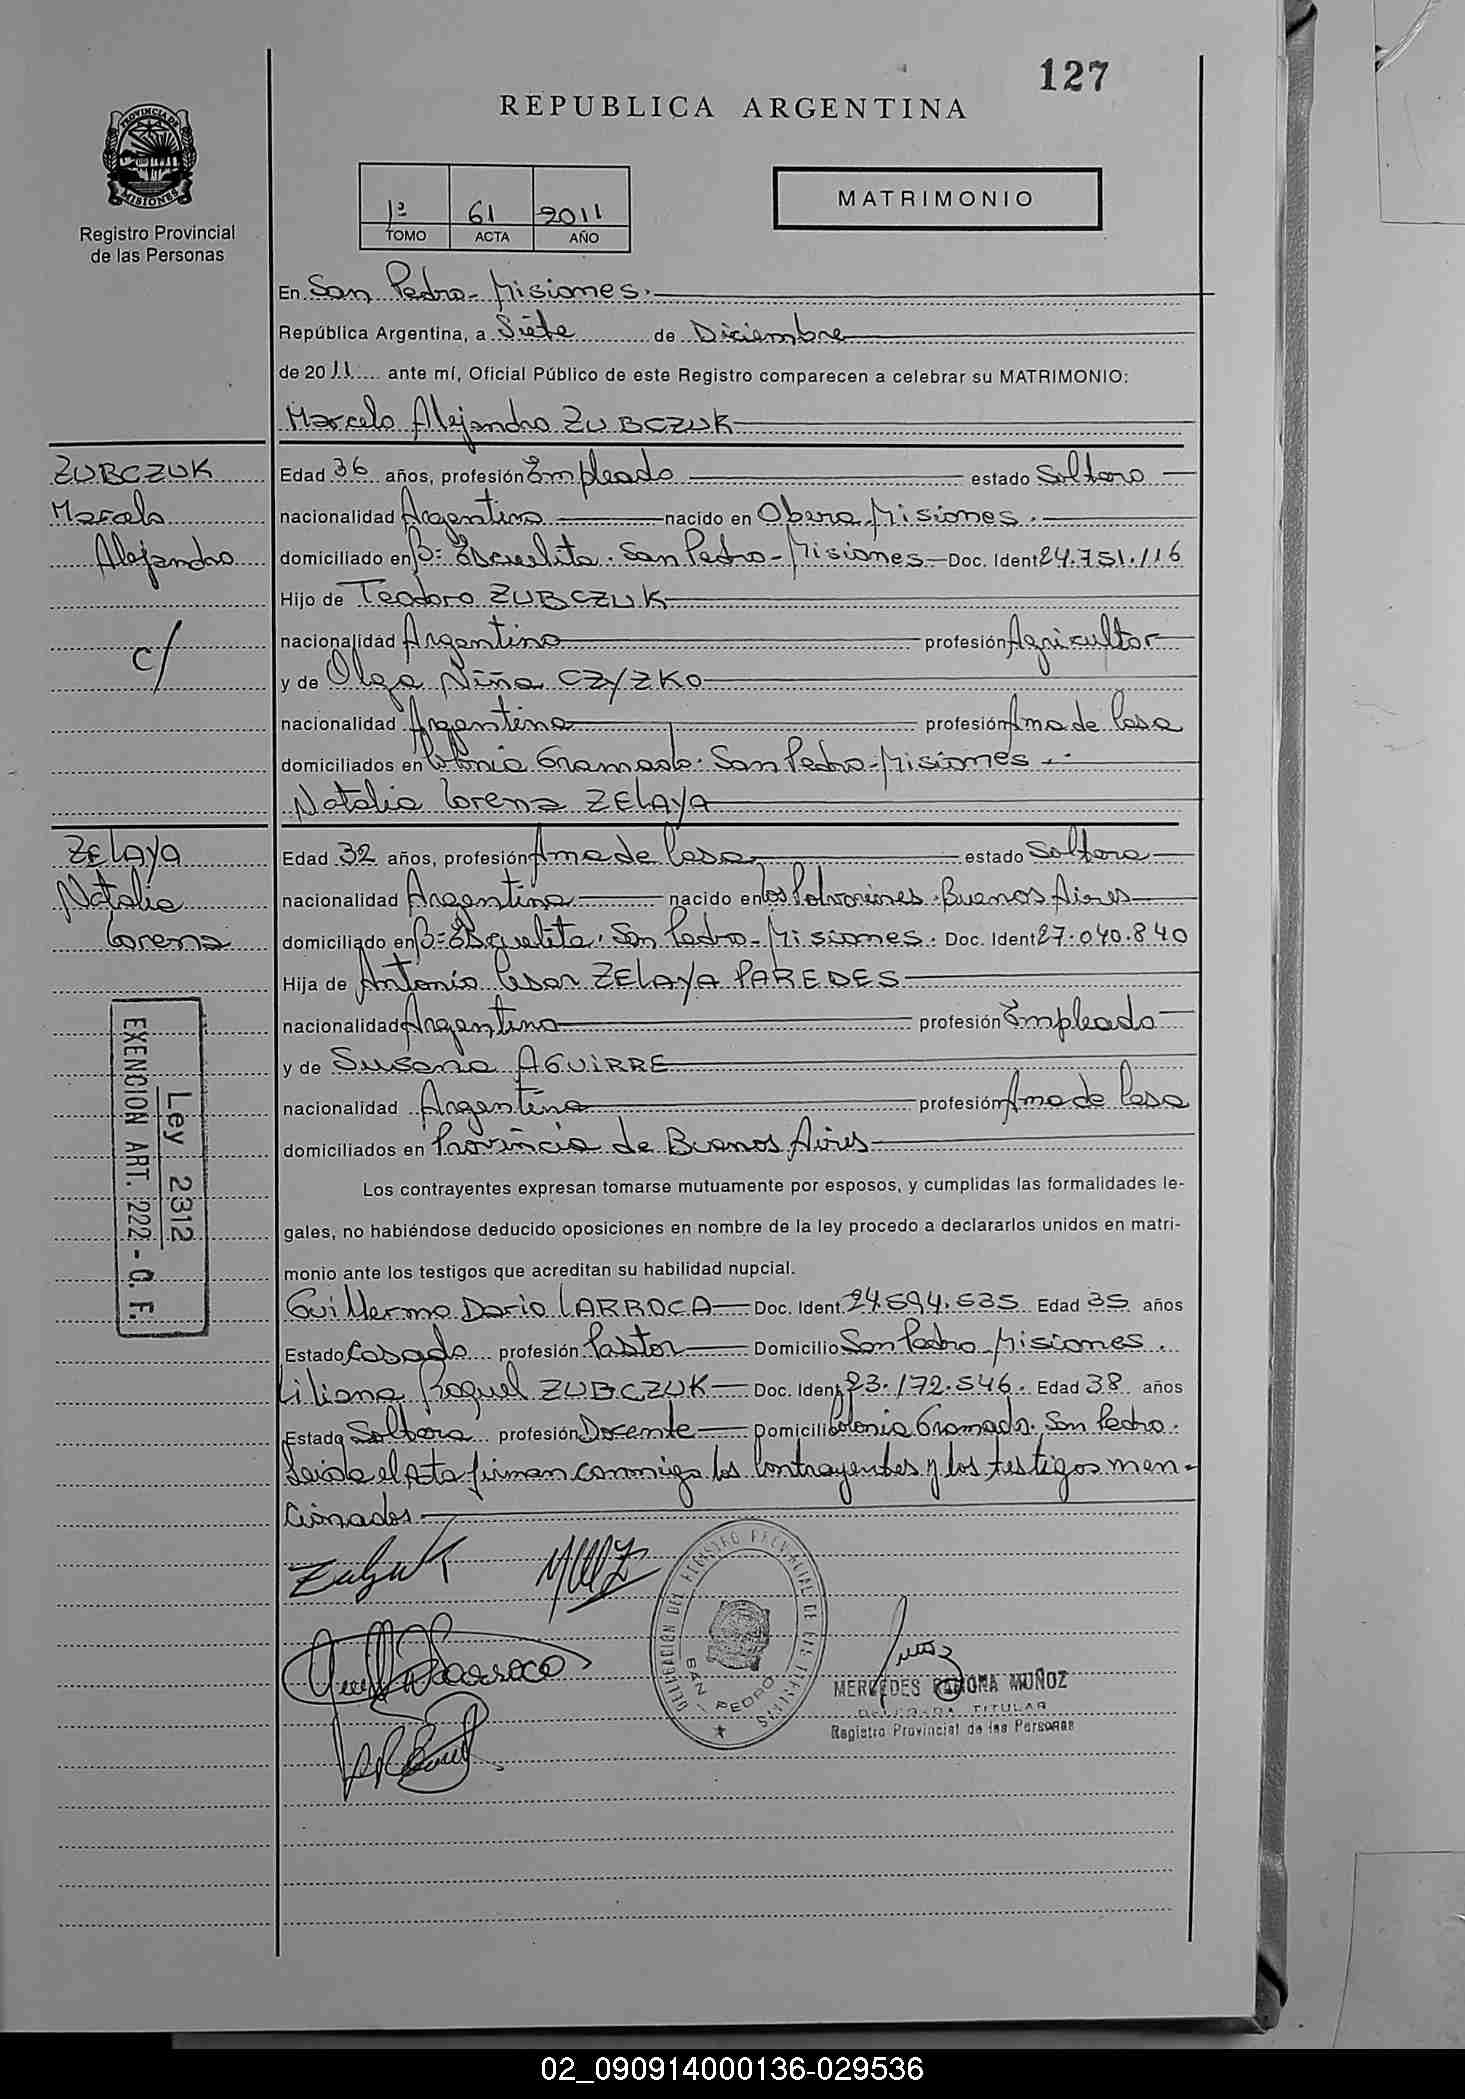 127
REPUBLICA ARGENTINA
PROVINCIA DE
MISIONES
Registro Provincial
de las Personas
1º 61 2011
TOMO ACTA AÑO
MATRIMONIO
En San Pedro - Misiones.
República Argentina, a Siete de Diciembre
de 2011 ante mí, Oficial Público de este Registro comparecen a celebrar su MATRIMONIO:
Marcelo Alejandro ZUBCZUK
ZUBCZUK
Marcelo
Alejandro
c/
Edad 36 años, profesión Empleado estado Soltero
nacionalidad Argentina nacido en Obera Misiones.
domiciliado en Bº Escuelita. San Pedro - Misiones Doc. Ident 24.751.116
Hijo de Teodoro ZUBCZUK
nacionalidad Argentino profesión Agricultor
y de Olga Niña CZYZKO
nacionalidad Argentina profesión Ama de Casa
domiciliados en Colonia Gramado. San Pedro - Misiones
Natalia Lorena ZELAYA
ZELAYA
Natalia
Lorena
Edad 32 años, profesión Ama de Casa estado Soltera
nacionalidad Argentina nacido en Los Polvorines. Buenos Aires
domiciliado en Bº Esquelita. San Pedro - Misiones. Doc. Ident 27.040.840
Hija de Antonio Cesar ZELAYA PAREDES
nacionalidad Argentino profesión Empleado
y de Susana AGUIRRE
nacionalidad Argentina profesión Ama de Casa
domiciliados en Provincia de Buenos Aires
Ley 2312
EXENCION ART. 222 - C. F.
Los contrayentes expresan tomarse mutuamente por esposos, y cumplidas las formalidades le-
gales, no habiéndose deducido oposiciones en nombre de la ley procedo a declararlos unidos en matri-
monio ante los testigos que acreditan su habilidad nupcial.
Guillermo Dario LARROCA Doc. Ident. 24.594.535 Edad 35 años
Estado Casado profesión Pastor Domicilio San Pedro Misiones.
Liliana Raquel ZUBCZUK Doc. Ident. 23.172.546. Edad 38 años
Estado Soltera profesión Docente Domicilio Colonia Gramado. San Pedro.
Leida el Acta firman conmigo los Contrayentes y los testigos men-
cionados.
DELEGACION DEL REGISTRO PROVINCIAL DE LAS PERSONAS
SAN PEDRO
MERCEDES RAMONA MUÑOZ
DELEGADA TITULAR
Registro Provincial de las Personas
02_090914000136-029536